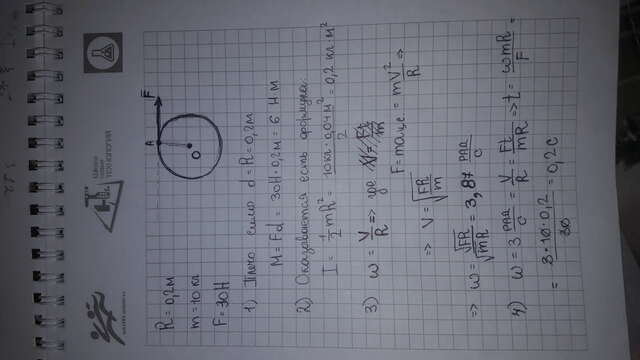 Школа
новых
ТЕХНОЛОГИЙ
R = 0,2м
m = 10 кг
F = 30Н
A
F
O
1) Плечо силы d = R = 0,2м
M = Fd = 30Н·0,2м = 6 Н·м
2) Оказывается есть формула:
I = 1/2 mR² = 10кг·0,04м²/2 = 0,2 кг·м²
3) ω = V/R => где
F = maц.с. = mV²/R =>
=> V = √(FR/m)
=> ω = √FR/√mR = 3,87 рад/с
4) ω = 3 рад/с = V/R = Ft/mR => t = ωmR/F =
= 3·10·0,2/30 = 0,2с